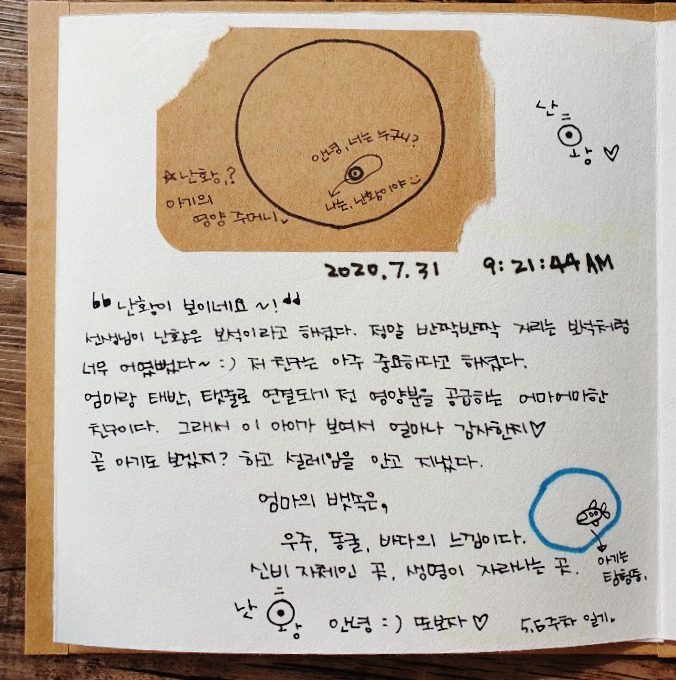 안녕, 너는 누구니?
☆ 난황,?
아기의
영양 주머니.
나는, 난황이야 :)
난
황 ♡
2020.7.31 9:21:44 AM
"난황이 보이네요 ~!"
선생님이 난황은 보석이라고 하셨다. 정말 반짝반짝 거리는 보석처럼
너무 어여뻤다~ :) 저 친구는 아주 중요하다고 하셨다.
엄마랑 태반, 탯줄로 연결되기 전 영양분을 공급하는 어마어마한
친구이다. 그래서 이 아이가 보여서 얼마나 감사한지♡
곧 아기도 보겠지? 하고 설레임을 안고 지냈다.
엄마의 뱃속은,
우주, 동굴, 바다의 느낌이다.
신비 자체인 곳, 생명이 자라나는 곳.
아기는
탐험중.
난
황
안녕 :) 또보자 ♡ 5,6주차 일기.